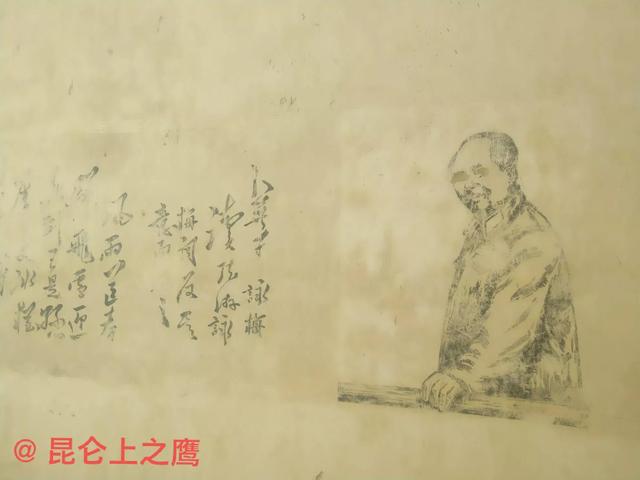 卜算子 詠梅
讀陸游詠
梅詞反其
意而之
风雨送春
歸飛雪迎
春到已是懸
崖丈冰猶
@ 昆仑上之鹰